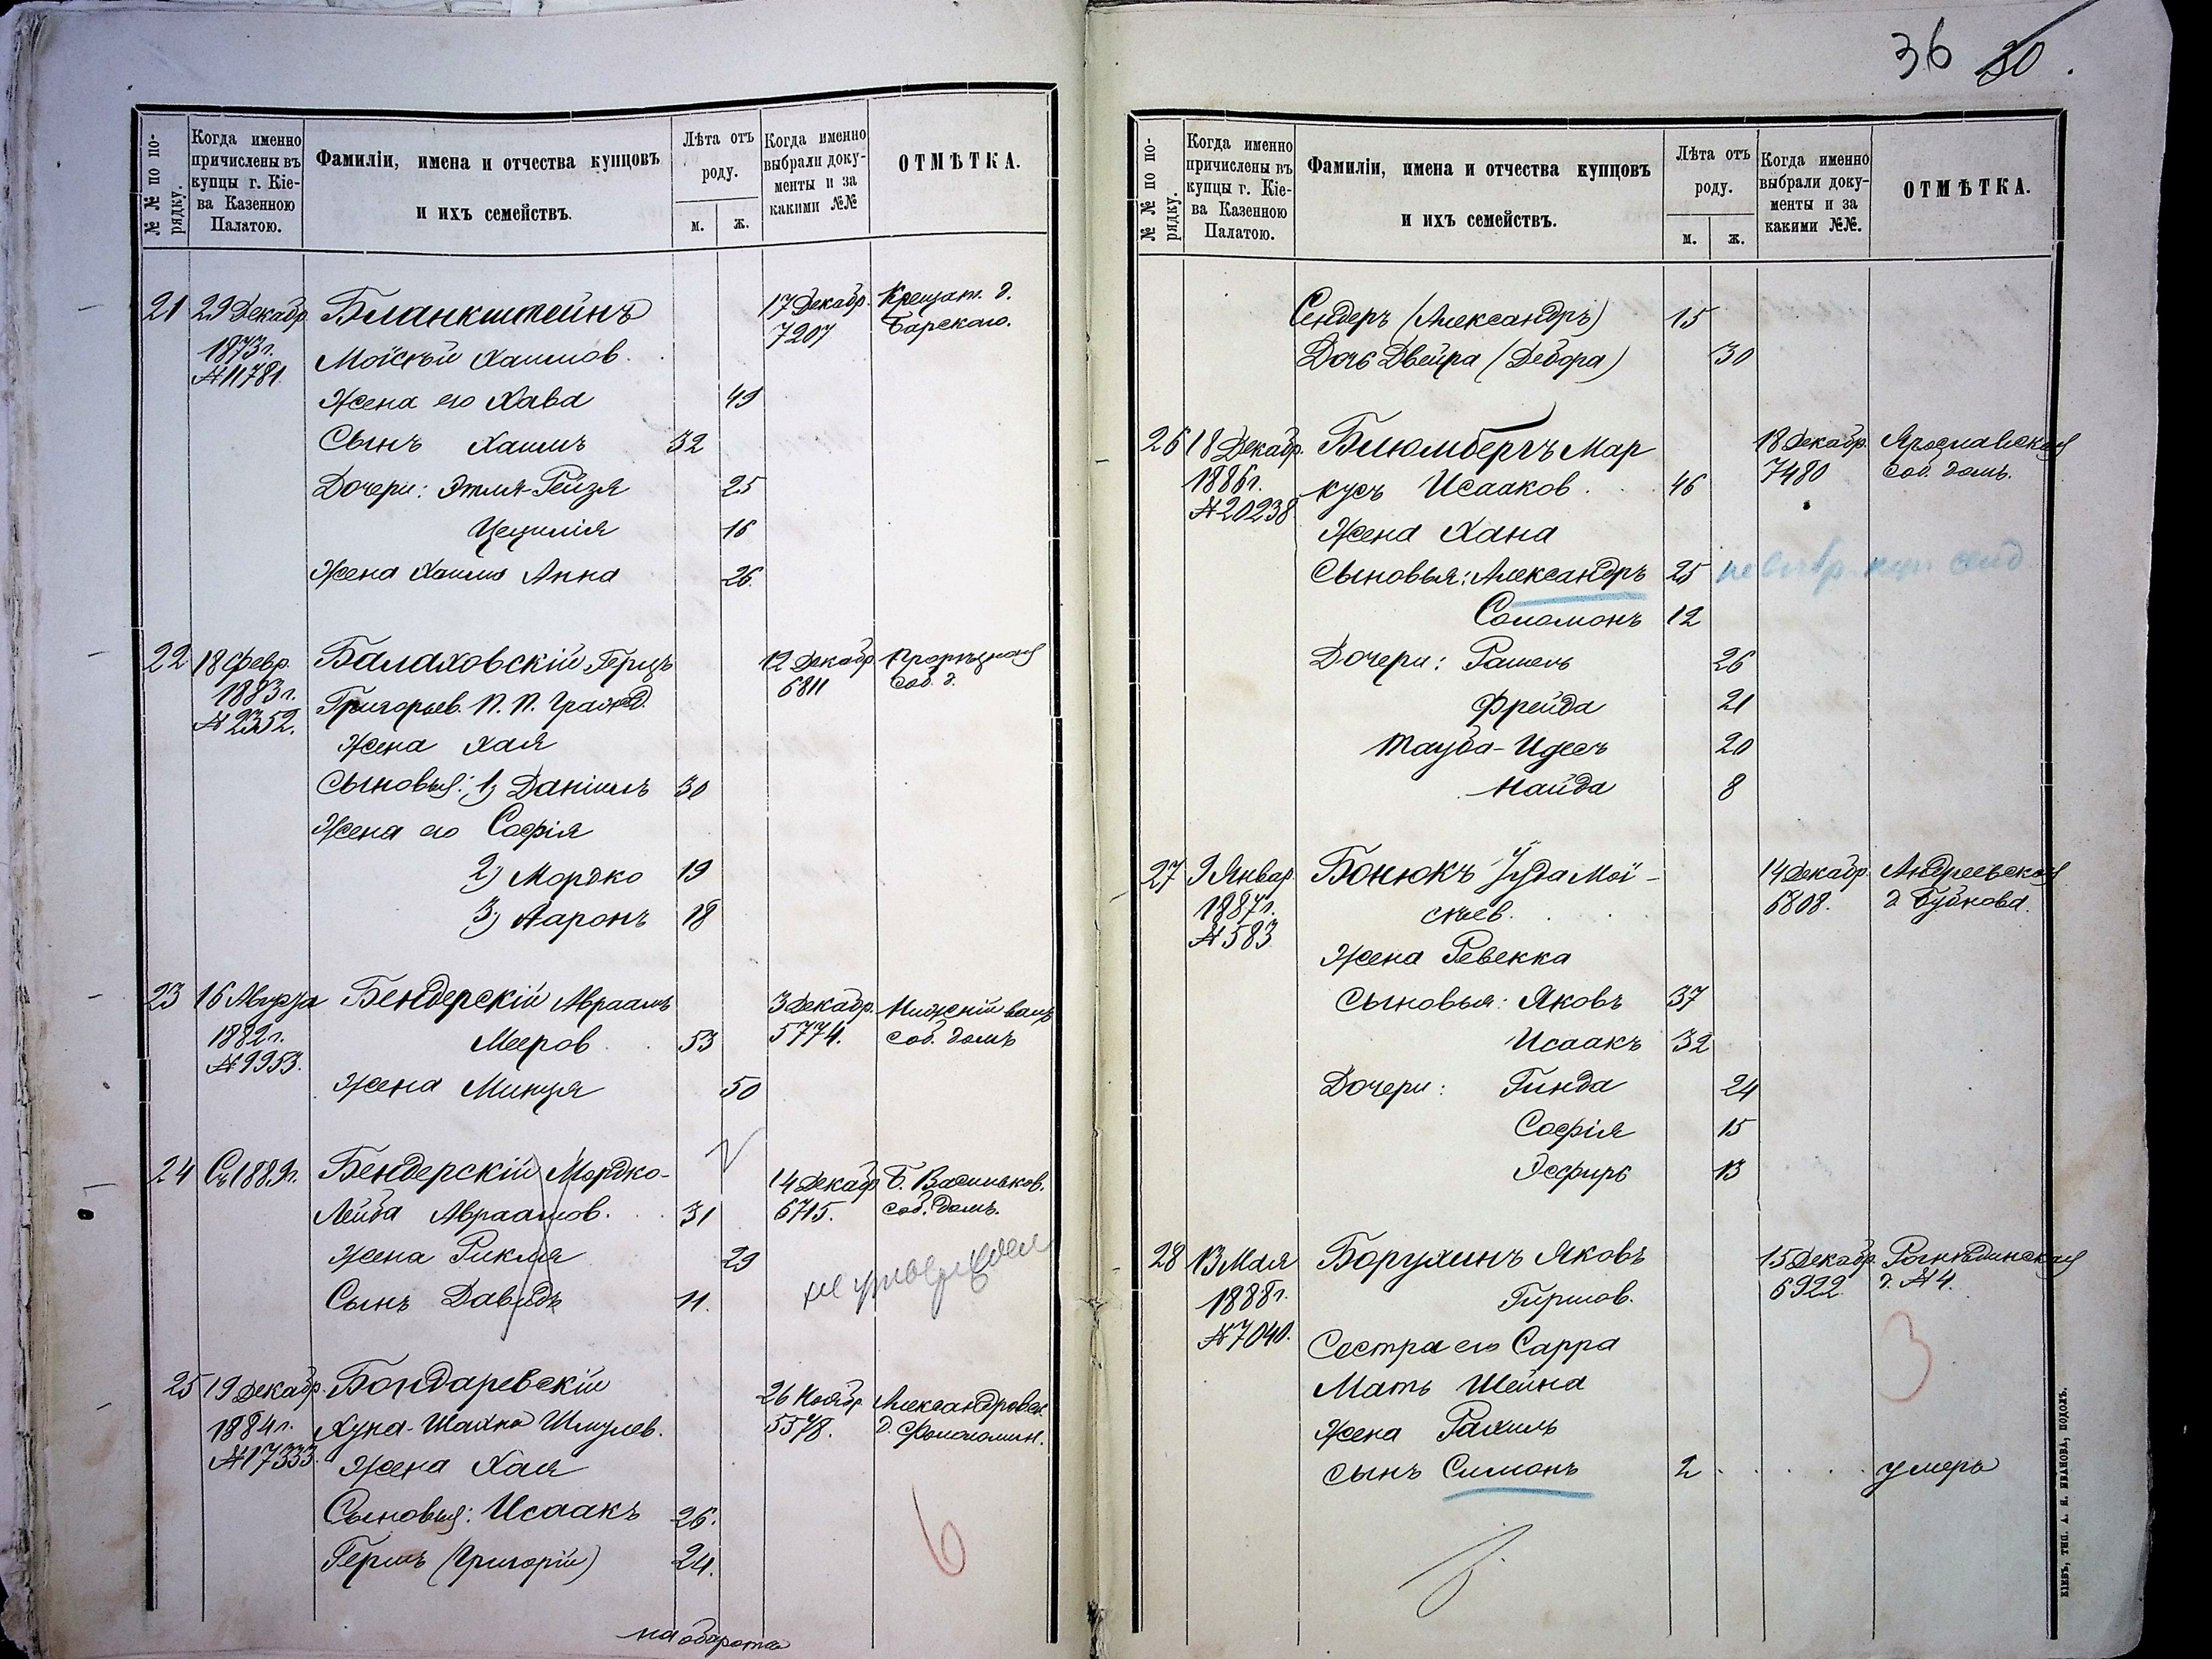 36 30
№ № по порядку.
Когда именно причислены въ купцы г. Кіева Казенною Палатою.
Фамиліи, имена и отчества купцовъ и ихъ семействъ.
Лѣта отъ роду.
м. ж.
Когда именно выбрали документы и за какими №№
ОТМѢТКА.
21 29 Декабр. Бланкштейнъ 17 Декабр. Крещат. д.
1873 г. Моісѣй Хаимов. 7207 Барскаго.
№ 11781.
Жена его Хава 49
Сынъ Хаимъ 32
Дочери: Этля-Рейзя 25
Цецилія 16
Жена Хаима Анна 26.
22 18 Февр. Балаховскій Герцъ 12 Декабр. Прорѣзная
1883 г. Григорьев. П. П. Гражд. 6811 Соб. д.
№ 2352.
Жена Хая
Сыновья: 1) Даніилъ 30
Жена его Софія
2) Мордко 19
3) Ааронъ 18
23 16 Августа Бендерскій Авраамъ 3 Декабр. Нижній валъ
1882 г. Мееров. 53 5774. соб. домъ
№ 9953.
Жена Минця 50
24 Съ 1889 г. Бендерскій Мордко- 14 Декабр. Б. Васильков.
Лейба Авраамов. 31 6715. соб. домъ.
Жена Рикля 29
Сынъ Давидъ 11.
25 19 Декабр. Бондаревскій 26 Ноябр. Александровск.
1884 г. Хуна-Шахна Шмулев. 5578.
№ 17333.
Жена Хая
Сыновья: Исаакъ 26.
Гершъ (Григорій) 24.
6
на оборотѣ
№ № по порядку.
Когда именно причислены въ купцы г. Кіева Казенною Палатою.
Фамиліи, имена и отчества купцовъ и ихъ семействъ.
Лѣта отъ роду.
м. ж.
Когда именно выбрали документы и за какими №№.
ОТМѢТКА.
Сендеръ (Александръ) 15
Дочь Двейра (Дебора) 30
26 18 Декабр. Блюмбергъ Мар 18 Декабр. Ярославская
1886 г. кусъ Исааков. 46 7480 Соб. домъ.
№ 20238
Жена Хана
Сыновья: Александръ 25
Соломонъ 12
Дочери: Рашель 26
Фрейда 21
Тауба-Идесъ 20
Найда 8
27 9 Январ. Бонюкъ Іуда Мої- 14 Декабр. Андреевская
1887 г. сѣев. 6808. д. Буйнова.
№ 583
Жена Ревекка
Сыновья: Яковъ 37
Исаакъ 32
Дочери: Гинда 24
Софія 15
Эсфирь 13
28 13 Мая Борухинъ Яковъ 15 Декабр. Рогнѣдинская
1888 г. Гиршов. 6922 д. № 4.
№ 7040.
Сестра его Сарра
3
Мать Шейна
Жена Рахиль
Сынъ Симонъ 2 умеръ
КІЕВЪ, ТИП. А. Н. ИВАНОВА, ПОДОЛЪ.